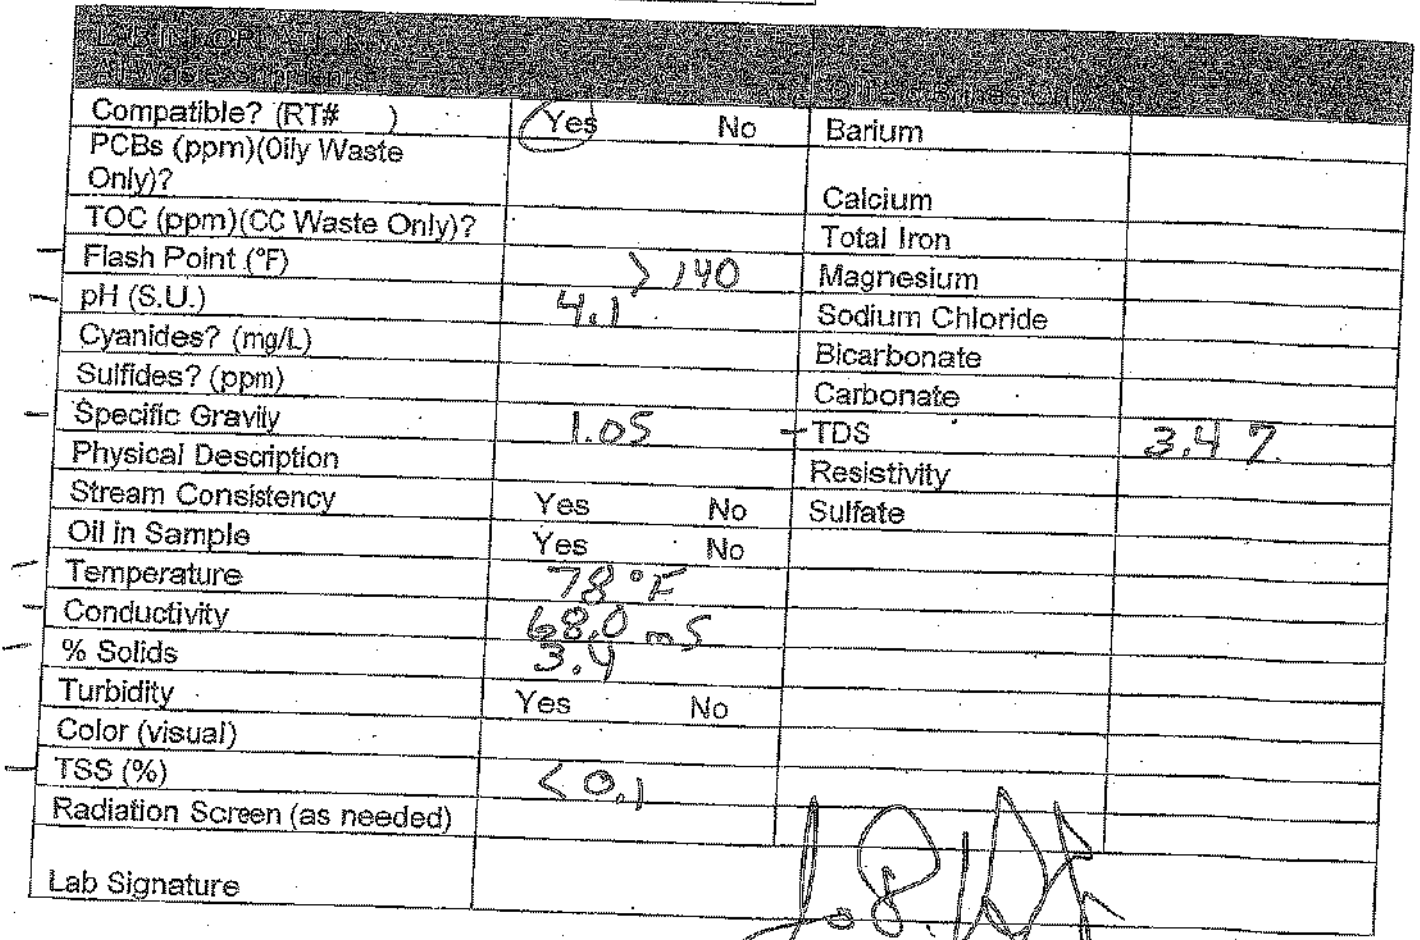 LAB INFORMATION
All Waste Shipments
Compatible? (RT# ) Yes No Barium
PCBs (ppm)(Oily Waste
Only)? Calcium
TOC (ppm)(CC Waste Only)? Total Iron
Flash Point (°F) > 140 Magnesium
pH (S.U.) 4.1 Sodium Chloride
Cyanides? (mg/L) Bicarbonate
Sulfides? (ppm) Carbonate
Specific Gravity 1.05 TDS 3.4
Physical Description Resistivity
Stream Consistency Yes No Sulfate
Oil in Sample Yes No
Temperature 78 °F
Conductivity 68.0 mS
% Solids 3.4
Turbidity Yes No
Color (visual)
TSS (%) < 0.1
Radiation Screen (as needed)
Lab Signature